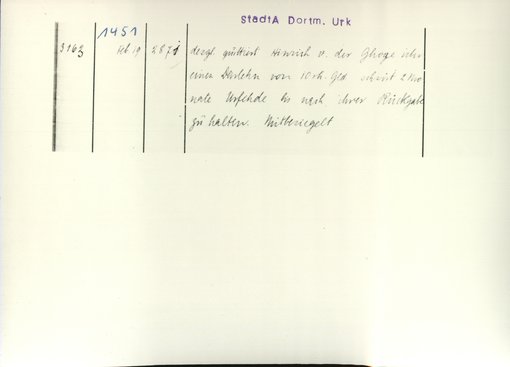 StadtA Dortm. Urk
1451
3163 Feb 19 2871 desgl. quittiert Hinrich v. der
einen Darlehn von 10 rh. Gld schwört 2 Mo
nate Urfehde bis nach ihrer Rückgabe
zu halten. Mitbesiegelt